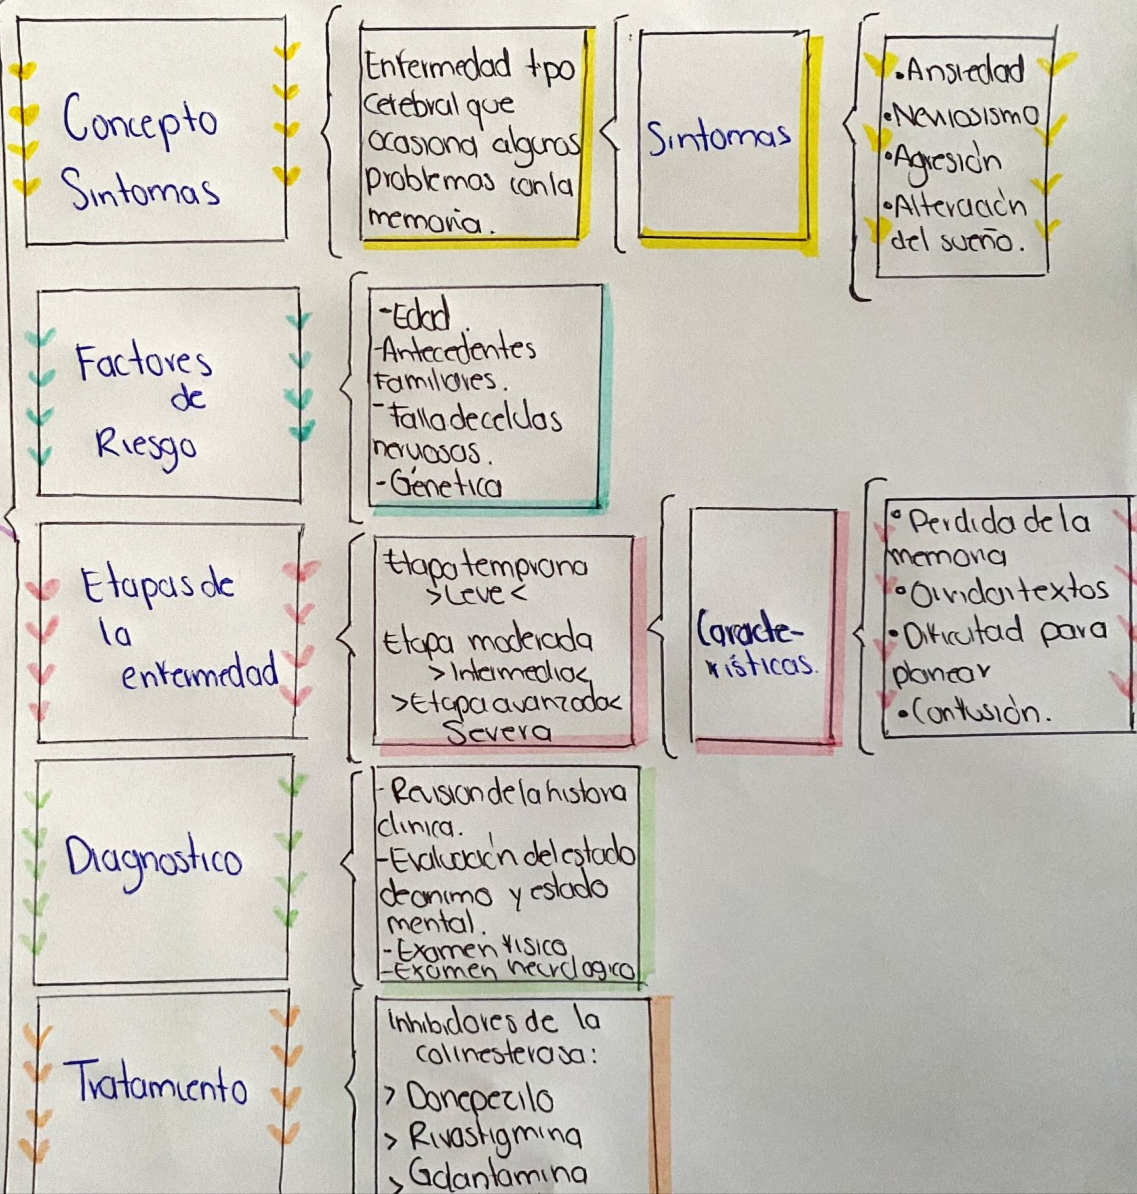 Concepto
Sintomas
Enfermedad tipo
cerebral que
ocasiona algunos
problemas con la
memoria.
Sintomas
•Ansiedad
•Nerviosismo
•Agresión
•Alteración
del sueño.
Factores
de
Riesgo
-Edad.
-Antecedentes
Familiares.
-Falla de celulas
nerviosas.
-Génetica
Etapas de
la
enfermedad
Etapa temprana
>Leve<
Etapa moderada
>Intermedia<
>Etapa avanzada<
Severa
Caracte-
rísticas.
•Perdida de la
memoria
•Olvidan textos
•Dificultad para
planear
•Confusión.
Diagnostico
-Revision de la historia
clinica.
-Evaluación del estado
de animo y estado
mental.
-Examen fisico
-Examen neurologico
Tratamiento
Inhibidores de la
colinesterasa:
> Donepezilo
> Rivastigmina
> Galantamina